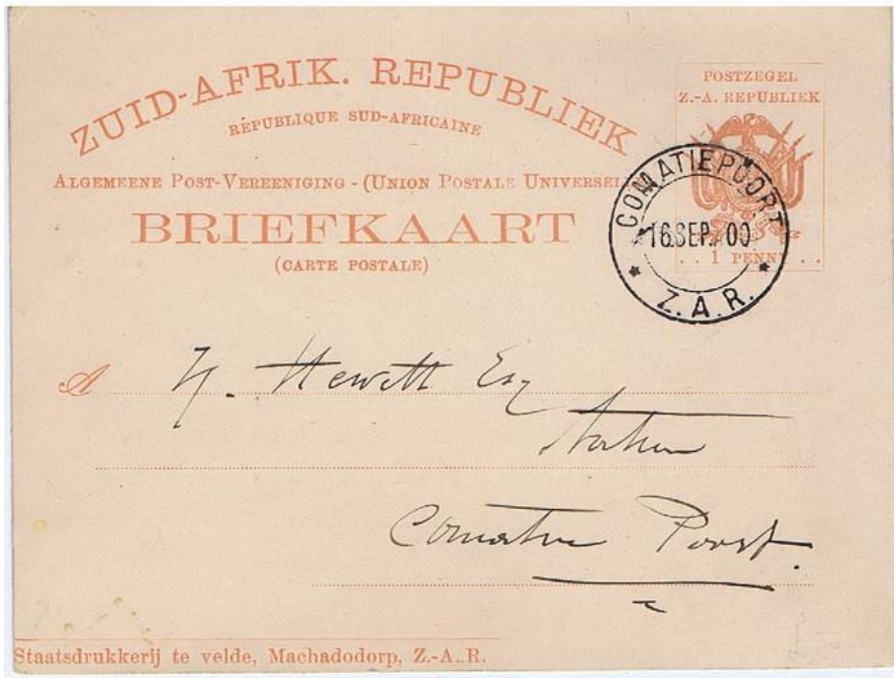 ZUID-AFRIK. REPUBLIEK
RÉPUBLIQUE SUD-AFRICAINE
ALGEMEENE POST-VEREENIGING - (UNION POSTALE UNIVERSEL
BRIEFKAART
(CARTE POSTALE)
POSTZEGEL
Z.-A. REPUBLIEK
1 PENNY
COMATIEPOORT
16 SEP. 00
Z.A.R.
A
Hewett Esq
Comatie Poort.
Staatsdrukkerij te velde, Machadodorp, Z.-A.R.